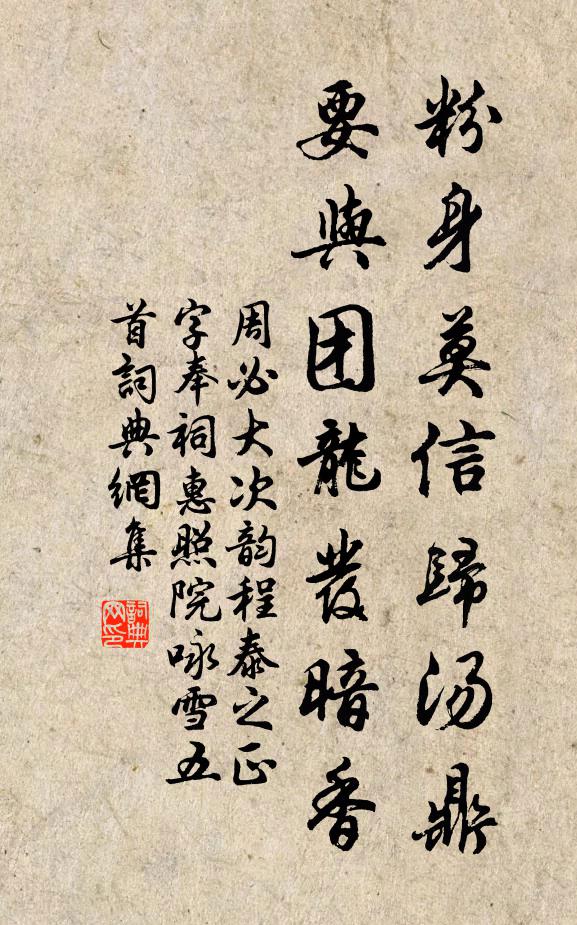 粉身莫信歸湯鼎
要與团龍發暗香
周必大次韵程泰之正
字奉祠惠照院咏雪五
首詞典網集
詞典
网印